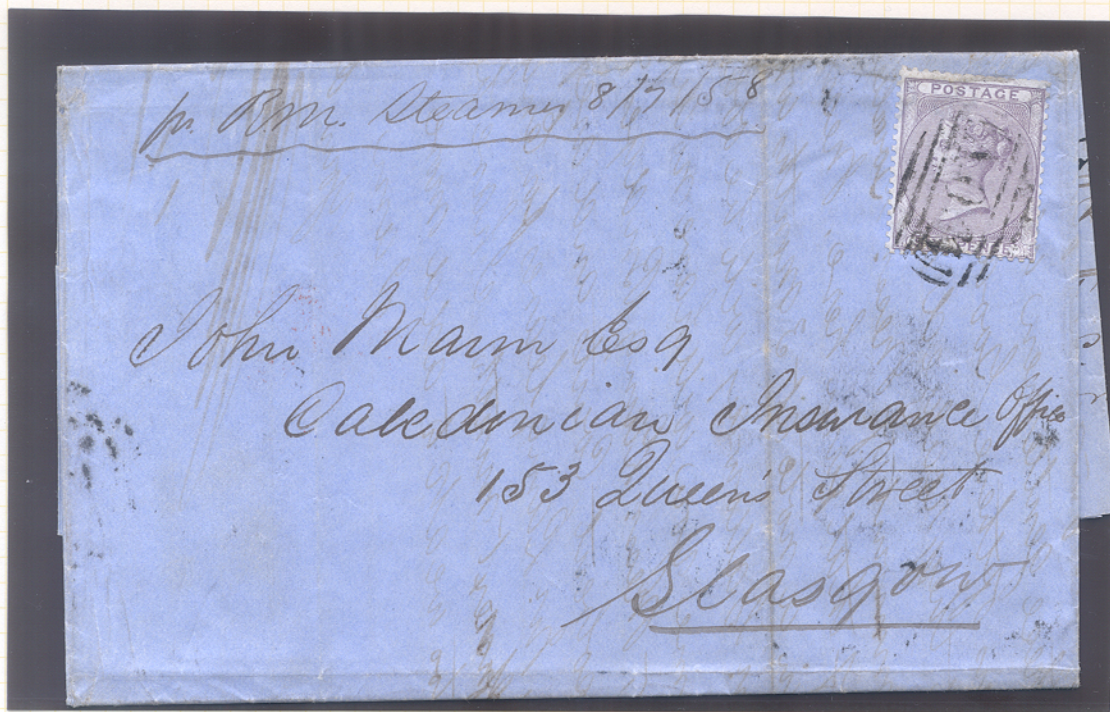 pr R.M. Steamer 8/7/58
POSTAGE
John Mann Esq
Caledonian Insurance Office
153 Queen's Street
Glasgow